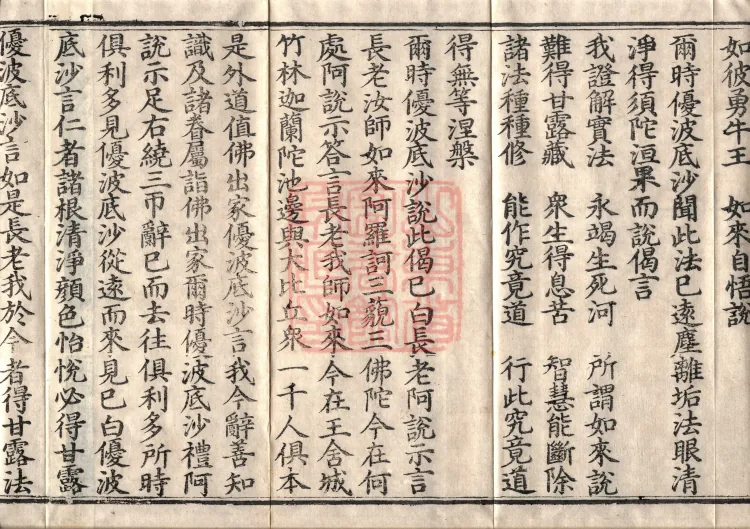 如彼勇牛王　如來自悟說
爾時優波底沙聞此法已遠塵離垢法眼清
淨得須陀洹果而說偈言
我證解實法　永竭生死河　所謂如來說
難得甘露藏　衆生得息苦　智慧能斷除
諸法種種修　能作究竟道　行此究竟道
得無等涅槃
爾時優波底沙說此偈巳白長老阿說示言
長老汝師如來阿羅訶三藐三佛陀今在何
處阿說示答言長老我師如來今在王舍城
竹林迦蘭陀池邊與大比丘衆一千人俱本
是外道值佛出家優波底沙言我今辭善知
識及諸眷屬詣佛出家爾時優波底沙禮阿
說示足右繞三帀辭巳而去往俱利多所時
俱利多見優波底沙從遠而來見巳白優波
底沙言仁者諸根清淨顏色怡悅必得甘露
優波底沙言如是長老我於今者得甘露法